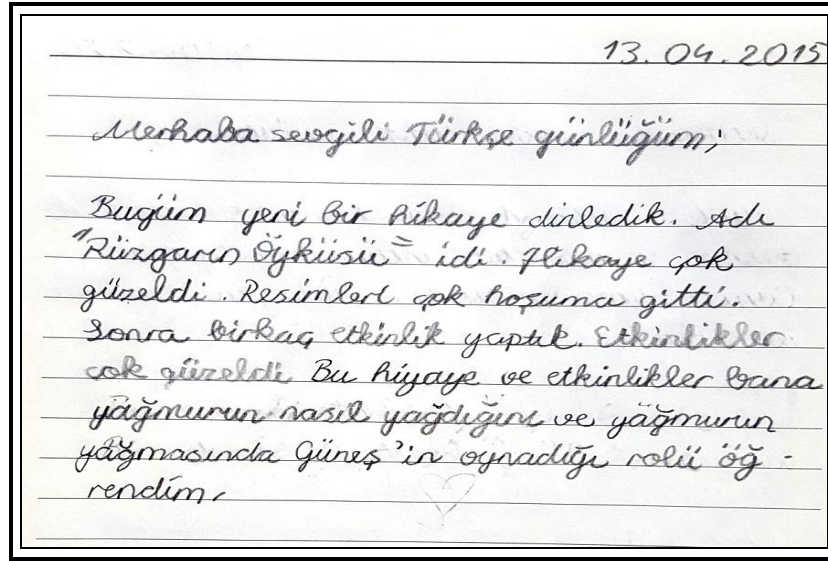 13.04.2015
Merhaba sevgili Türkçe günlüğüm;
Bugün yeni bir hikaye dinledik. Adı
"Rüzgarın Öyküsü" idi. Hikaye çok
güzeldi. Resimleri çok hoşuma gitti.
Sonra birkaç etkinlik yaptık. Etkinlikler
çok güzeldi Bu hiyaye ve etkinlikler bana
yağmurun nasıl yağdığını ve yağmurun
yağmasında Güneş'in oynadığı rolü öğ-
rendim.